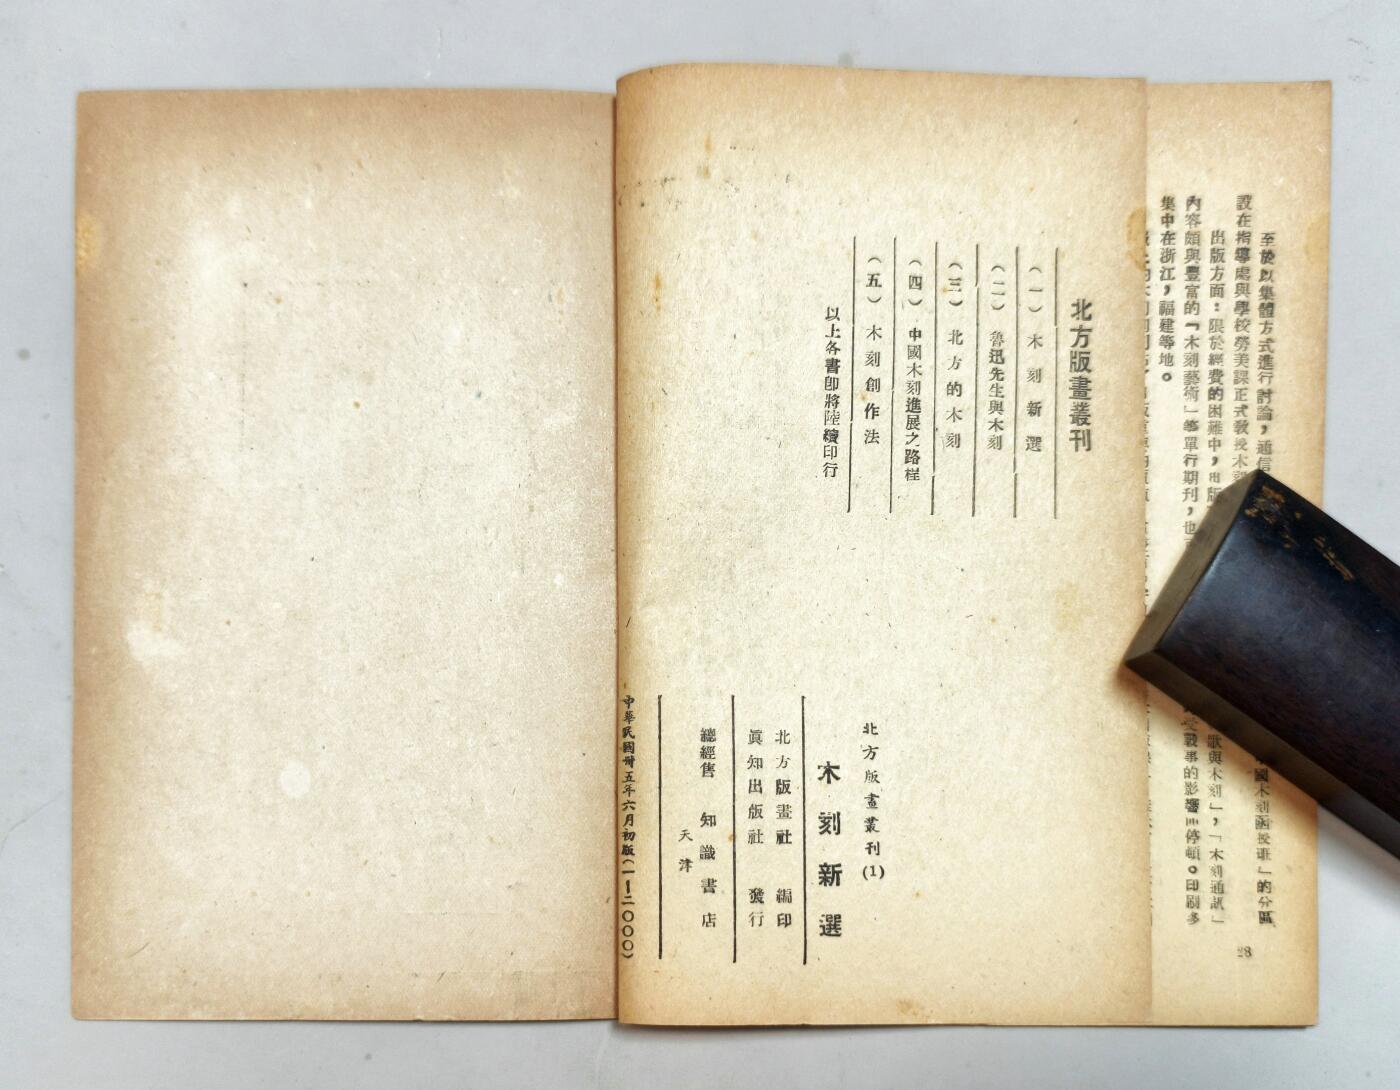 至於以集體方式進行討論，通信
國木刻函授班」的分區
設在指導處與學校勞美課正式教授木刻
出版方面：限於經費的困難中，出版
歌與木刻」，「木刻通訊」
內容頗與豐富的「木刻藝術」等單行期刊，也
受戰事的影響而停頓。印刷多
集中在浙江，福建等地。
28
北方版畫叢刊
（一）木刻新選
（二）魯迅先生與木刻
（三）北方的木刻
（四）中國木刻進展之路程
（五）木刻創作法
以上各書卽將陸續印行
北方版畫叢刊(1)
木刻新選
北方版畫社 編印
眞知出版社 發行
總經售 知識書店
天津
中華民國卅五年六月初版(一—二〇〇〇)